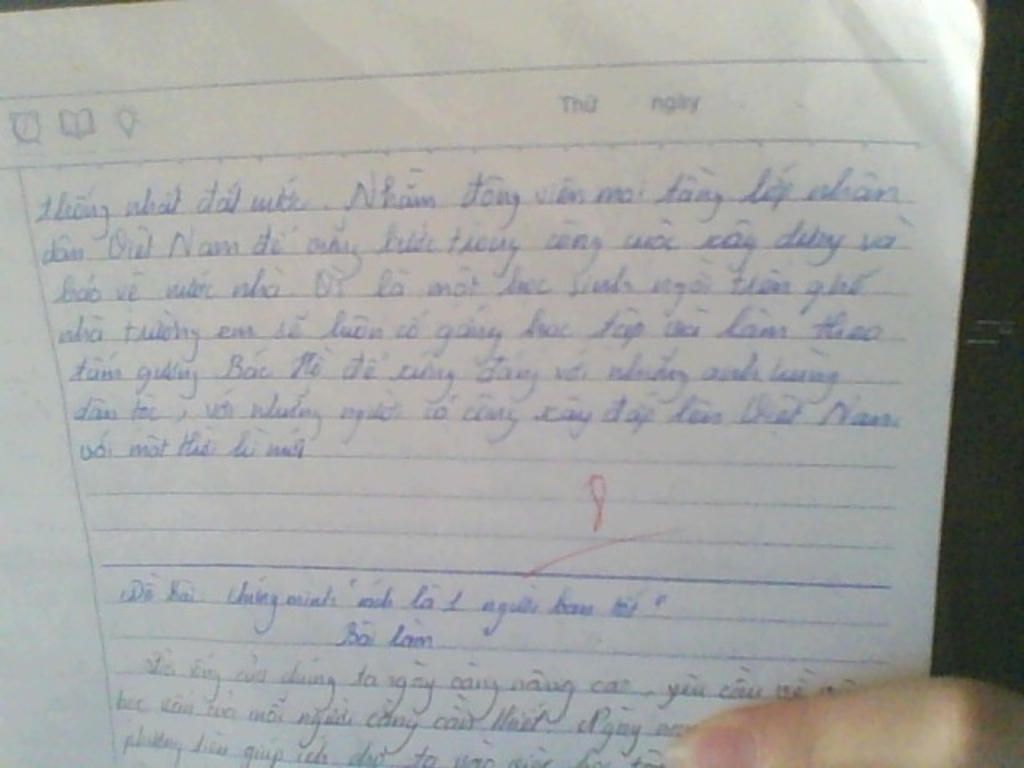 Thứ ngày
thống nhất đất nước. Nhằm động viên mọi tầng lớp nhân
dân Việt Nam để vững bước trong công cuộc xây dựng và
bảo vệ nước nhà. Vì là một học sinh ngồi trên ghế
nhà trường em sẽ luôn cố gắng học tập và làm theo
tấm gương Bác Hồ để xứng đáng với những anh hùng
dân tộc, với những người có công xây đắp lên Việt Nam
với một thời kì mới
8
Đề bài: Chứng minh "sách là 1 người bạn tốt"
Bài làm
Đời sống của chúng ta ngày càng nâng cao, yêu cầu về
học vấn của mỗi người càng cần thiết. Ngày nay
phương tiện giúp ích cho ta vào việc học tập